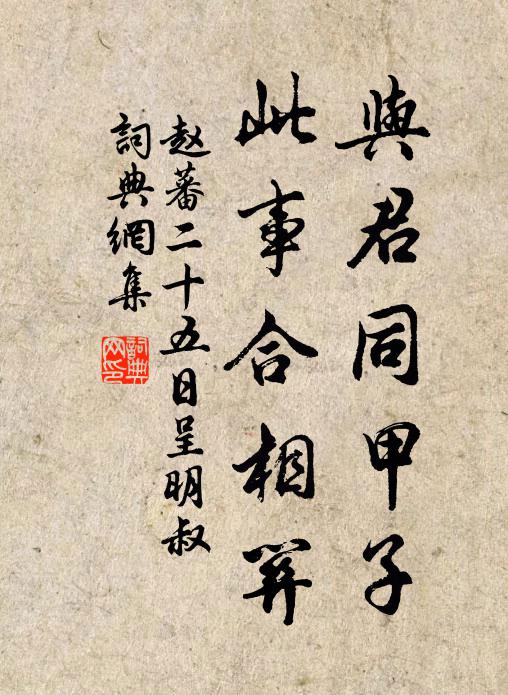 與君同甲子
此事合相關
赵蕃二十五日呈明叔
詞典網集
詞典网印